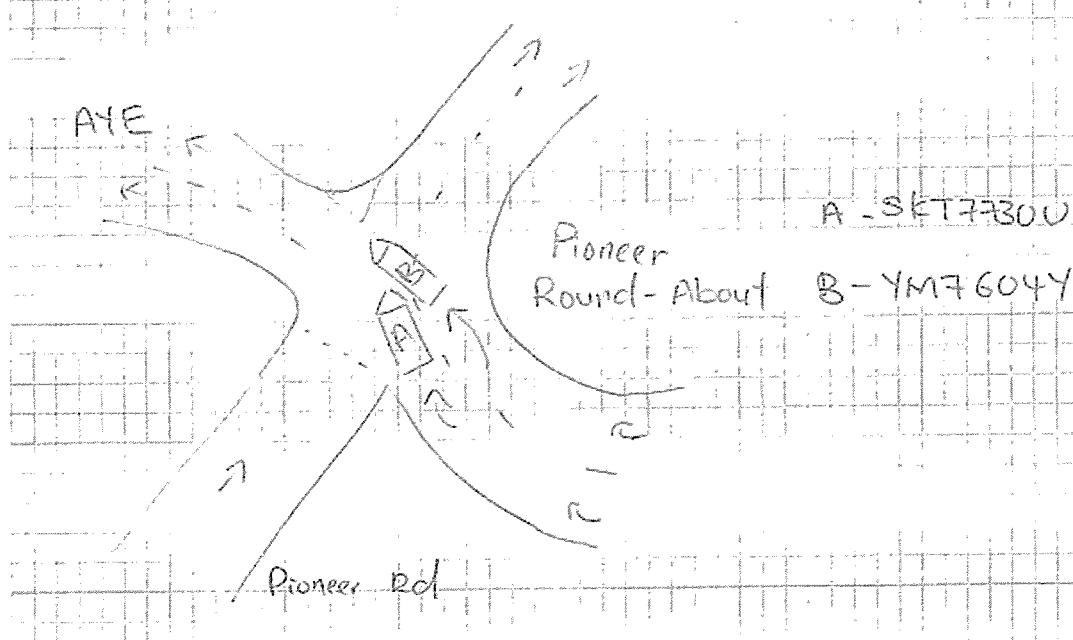 AYE
A - SKT7730U
Pioneer
Round-About
B - YM7604Y
B
A
Pioneer Rd